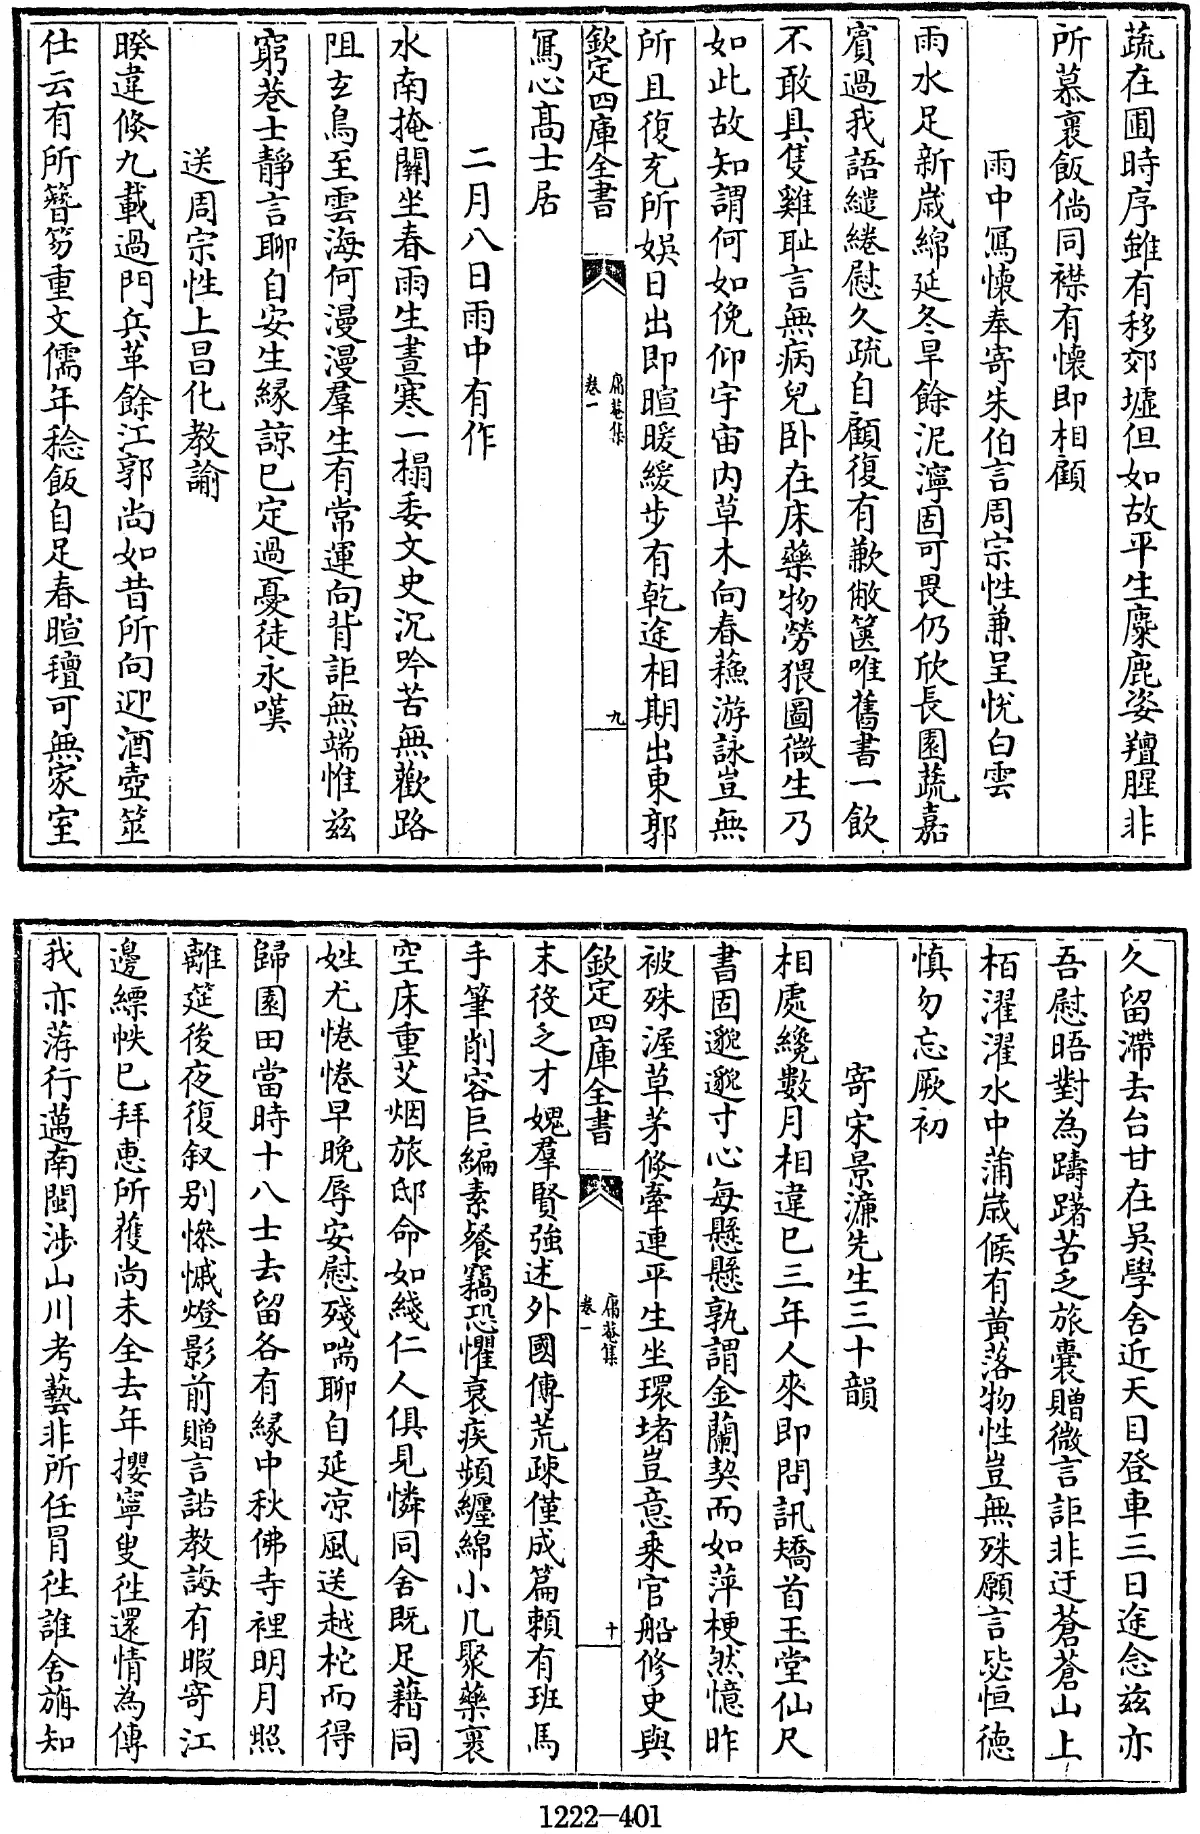 蔬在圃時序雖有移郊墟但如故平生麋鹿姿羶腥非
所慕裹飯倘同襟有懷即相顧
雨中寫懷奉寄朱伯言周宗性兼呈恱白雲
雨水足新歳綿延冬旱餘泥濘固可畏仍欣長園蔬嘉
賓過我語繾綣慰久疏自顧復有歉敝篋唯舊書一飲
不敢具隻雞耻言無病兒卧在床藥物勞猥圖微生乃
如此故知謂何如俛仰宇宙内草木向春蘓游詠豈無
所且復充所娱日出即暄暖緩步有乾途相期出東郭
欽定四庫全書
庸菴集
卷一
九
寫心髙士居
二月八日雨中有作
水南掩關坐春雨生晝寒一榻委文史沉吟苦無歡路
阻𤣥鳥至雲海何漫漫羣生有常運向背詎無端惟兹
窮巷士靜言聊自安生縁諒已定過憂徒永嘆
送周宗性上昌化教諭
睽違倐九載過門兵革餘江郭尚如昔所向迎酒壺筮
仕云有所簪笏重文儒年稔飯自足春暄氊可無家室
久留滯去台甘在吳學舍近天目登車三日途念兹亦
吾慰晤對為躊躇苦乏旅囊贈微言詎非迂蒼蒼山上
栢濯濯水中蒲嵗候有黄落物性豈無殊願言毖恒德
慎勿忘厥初
寄宋景濂先生三十韻
相處纔數月相違已三年人來即問訊矯首玉堂仙尺
書固邈邈寸心每懸懸孰謂金蘭契而如萍梗然憶昨
被殊渥草茅倐牽連平生坐環堵豈意乘官船修史與
欽定四庫全書
庸菴集
卷一
十
末役乏才媿羣賢強述外國傳荒疎僅成篇頼有班馬
手筆削容巨編素餐竊恐懼衰疾頻纒綿小几聚藥裹
空床重艾烟旅邸命如綫仁人俱見憐同舍既足藉同
姓尤惓惓早晚辱安慰殘喘聊自延凉風送越柁而得
歸園田當時十八士去留各有縁中秋佛寺裡明月照
離筵後夜復叙别慘慽燈影前贈言諾教誨有暇寄江
邊縹帙已拜惠所獲尚未全去年攖寧叟徃還情為傳
我亦荐行邁南閩渉山川考藝非所任冒徃誰舍旃知
1222—401